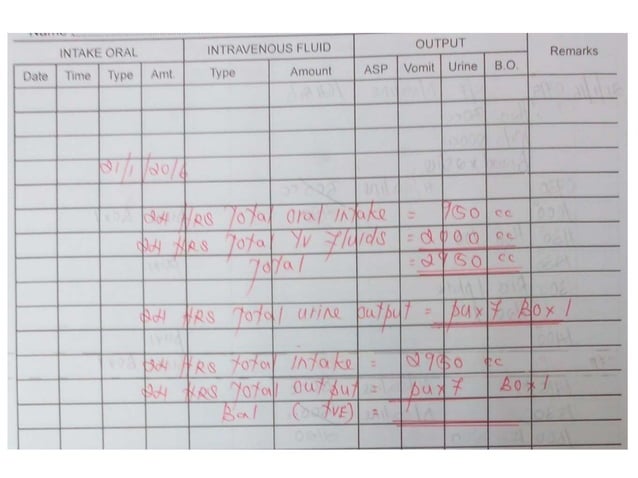 INTAKE ORAL INTRAVENOUS FLUID OUTPUT Remarks
Date Time Type Amt. Type Amount ASP Vomit Urine B.O.
21/1/2016
24 HRS Total oral intake = 950 cc
24 HRS Total IV Fluids = 2000 cc
Total = 2950 cc
24 HRS Total urine output = pux7 Box1
24 HRS total intake = 2950 cc
24 HRS Total output = pux7 Box1
Bal (+VE) =